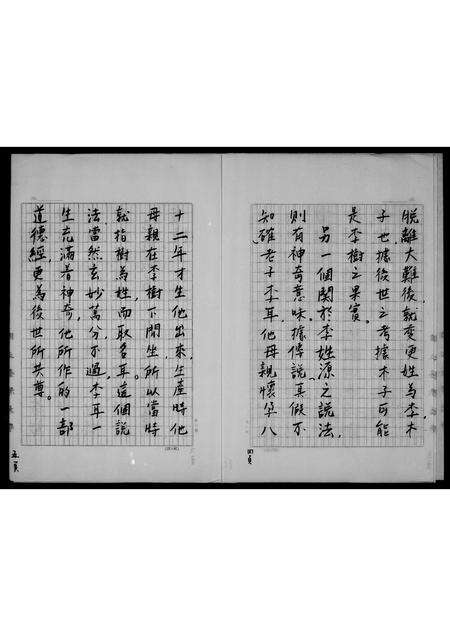 脱離大難後,就變更姓為李木
子也據後世之考據木子可能
是李樹之果實。
另一個関於李姓源之說法,
則有神奇意味據傳說真假不
知確老子李耳他母親懷孕八
四頁
十二年才生他出來,生產時他
母親在李樹下閒坐所以當時
就指樹為姓,而取名耳。這個說
法當然玄妙萬分不過,李耳一
生充滿着神奇,他所作的一部
道德經更為後世所共尊。
五頁